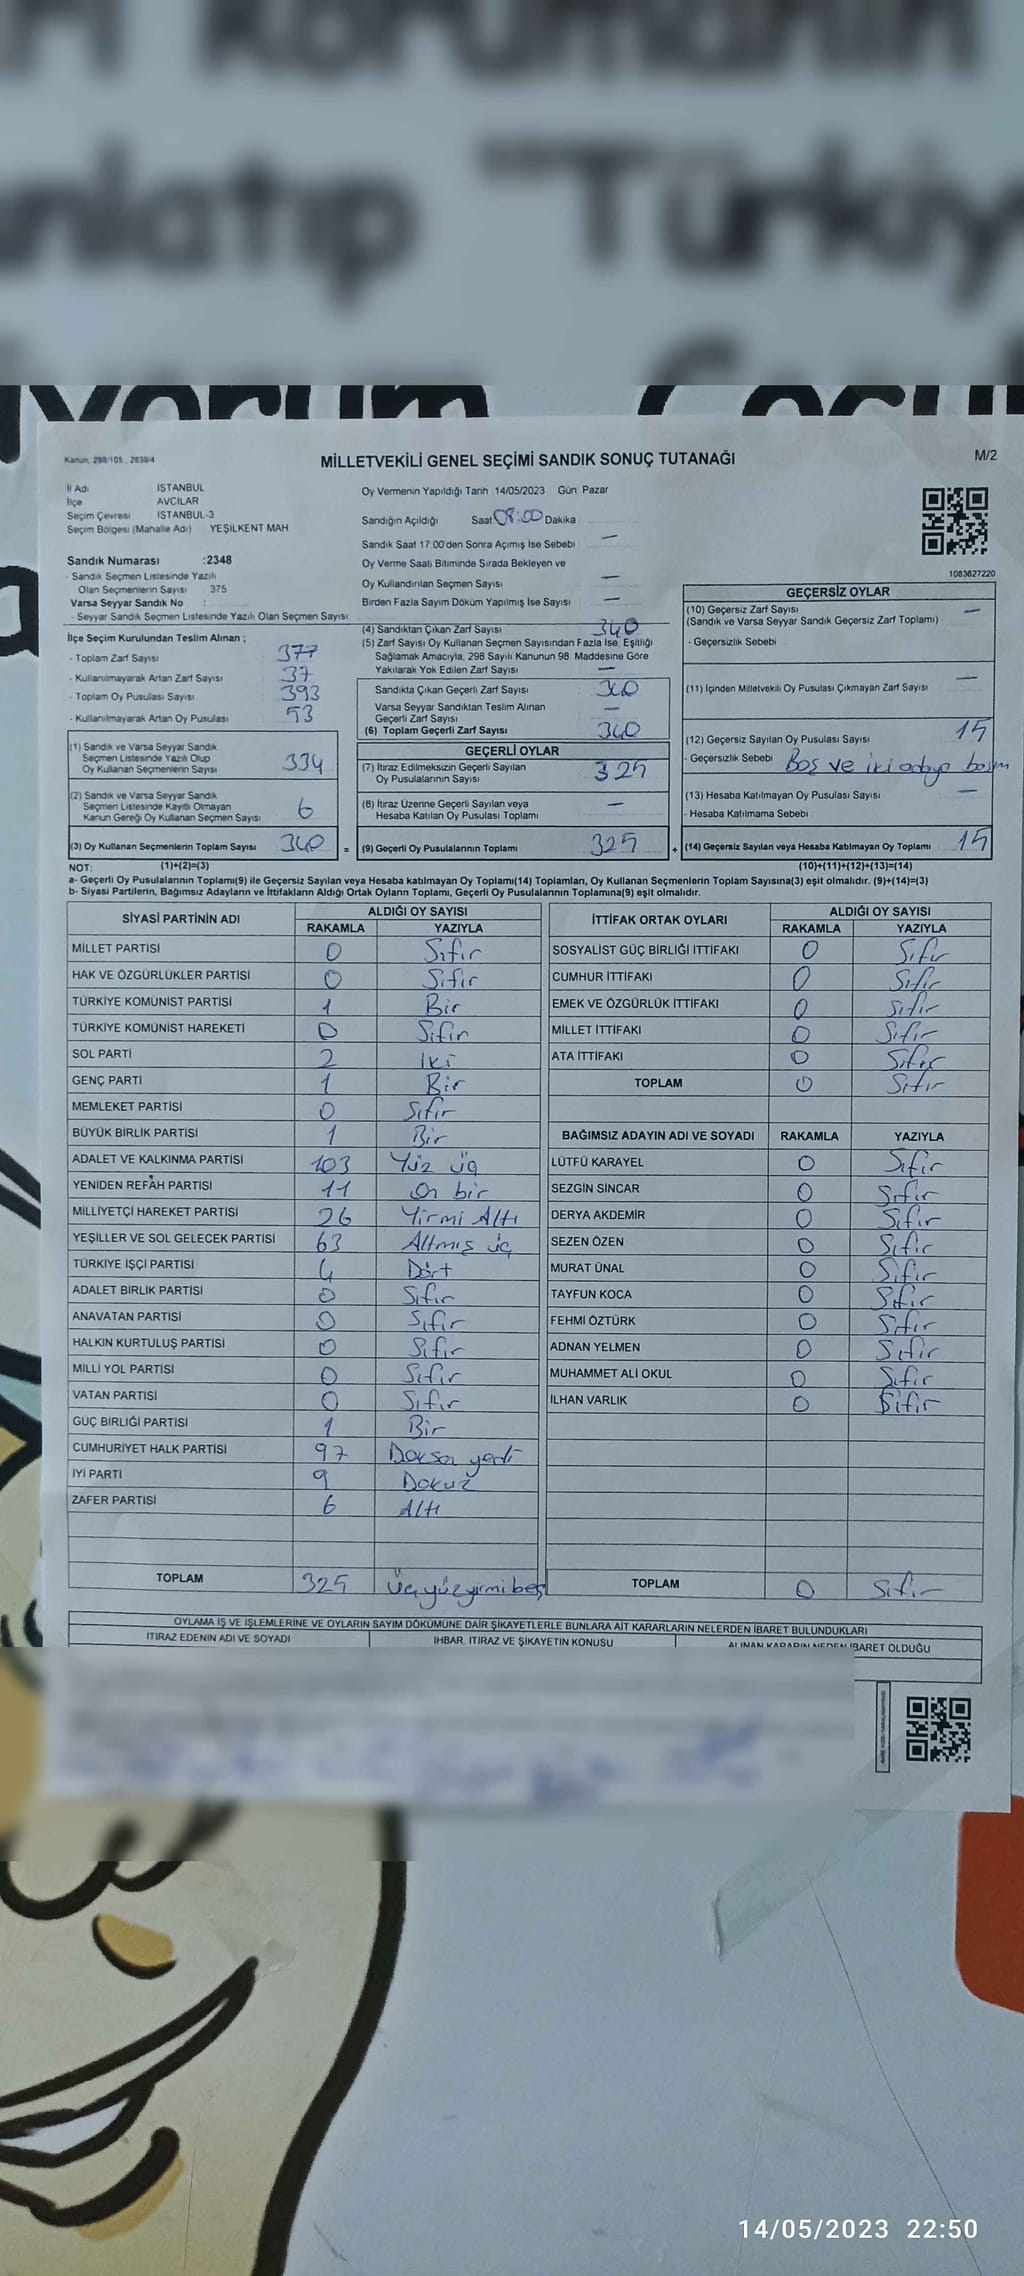 "Türkiy
Kanun, 298/105 , 2839/4
MİLLETVEKİLİ GENEL SEÇİMİ SANDIK SONUÇ TUTANAĞI
M/2
İl Adı İSTANBUL
İlçe AVCILAR
Seçim Çevresi İSTANBUL-3
Seçim Bölgesi (Mahalle Adı) YEŞİLKENT MAH.
Sandık Numarası :2348
- Sandık Seçmen Listesinde Yazılı
Olan Seçmenlerin Sayısı : 375
Varsa Seyyar Sandık No :
- Seyyar Sandık Seçmen Listesinde Yazılı Olan Seçmen Sayısı
Oy Vermenin Yapıldığı Tarih 14/05/2023 Gün: Pazar
Sandığın Açıldığı Saat 08:00 Dakika
Sandık Saat 17:00'den Sonra Açımış İse Sebebi —
Oy Verme Saati Bitiminde Sırada Bekleyen ve
Oy Kullandırılan Seçmen Sayısı —
Birden Fazla Sayım Döküm Yapılmış İse Sayısı —
1083627220
İlçe Seçim Kurulundan Teslim Alınan ;
- Toplam Zarf Sayısı 377
- Kullanılmayarak Artan Zarf Sayısı 37
- Toplam Oy Pusulası Sayısı 393
- Kullanılmayarak Artan Oy Pusulası 53
(1) Sandık ve Varsa Seyyar Sandık
Seçmen Listesinde Yazılı Olup
Oy Kullanan Seçmenlerin Sayısı 334
(2) Sandık ve Varsa Seyyar Sandık
Seçmen Listesinde Kayıtlı Olmayan
Kanun Gereği Oy Kullanan Seçmen Sayısı 6
(3) Oy Kullanan Seçmenlerin Toplam Sayısı 340 =
(4) Sandıktan Çıkan Zarf Sayısı 340
(5) Zarf Sayısı Oy Kullanan Seçmen Sayısından Fazla İse, Eşitliği
Sağlamak Amacıyla, 298 Sayılı Kanunun 98. Maddesine Göre
Yakılarak Yok Edilen Zarf Sayısı —
Sandıkta Çıkan Geçerli Zarf Sayısı 340
Varsa Seyyar Sandıktan Teslim Alınan
Geçerli Zarf Sayısı —
(6) Toplam Geçerli Zarf Sayısı 340
GEÇERLİ OYLAR
(7) İtiraz Edilmeksizin Geçerli Sayılan
Oy Pusulalarının Sayısı 325
(8) İtiraz Üzerine Geçerli Sayılan veya
Hesaba Katılan Oy Pusulası Toplamı —
(9) Geçerli Oy Pusulalarının Toplamı 325 +
GEÇERSİZ OYLAR
(10) Geçersiz Zarf Sayısı —
(Sandık ve Varsa Seyyar Sandık Geçersiz Zarf Toplamı)
- Geçersizlik Sebebi
(11) İçinden Milletvekili Oy Pusulası Çıkmayan Zarf Sayısı —
(12) Geçersiz Sayılan Oy Pusulası Sayısı 15
- Geçersizlik Sebebi Boş ve iki adaya basım
(13) Hesaba Katılmayan Oy Pusulası Sayısı —
- Hesaba Katılmama Sebebi
(14) Geçersiz Sayılan veya Hesaba Katılmayan Oy Toplamı 15
NOT: (1)+(2)=(3) (10)+(11)+(12)+(13)=(14)
a- Geçerli Oy Pusulalarının Toplamı(9) ile Geçersiz Sayılan veya Hesaba katılmayan Oy Toplamı(14) Toplamları, Oy Kullanan Seçmenlerin Toplam Sayısına(3) eşit olmalıdır. (9)+(14)=(3)
b- Siyasi Partilerin, Bağımsız Adayların ve İttifakların Aldığı Ortak Oyların Toplamı, Geçerli Oy Pusulalarının Toplamına(9) eşit olmalıdır.
SİYASİ PARTİNİN ADI ALDIĞI OY SAYISI
RAKAMLA YAZIYLA
MİLLET PARTİSİ 0 Sıfır
HAK VE ÖZGÜRLÜKLER PARTİSİ 0 Sıfır
TÜRKİYE KOMÜNİST PARTİSİ 1 Bir
TÜRKİYE KOMÜNİST HAREKETİ 0 Sıfır
SOL PARTİ 2 İki
GENÇ PARTİ 1 Bir
MEMLEKET PARTİSİ 0 Sıfır
BÜYÜK BİRLİK PARTİSİ 1 Bir
ADALET VE KALKINMA PARTİSİ 103 Yüz üç
YENİDEN REFAH PARTİSİ 11 On bir
MİLLİYETÇİ HAREKET PARTİSİ 26 Yirmi Altı
YEŞİLLER VE SOL GELECEK PARTİSİ 63 Altmış üç
TÜRKİYE İŞÇİ PARTİSİ 4 Dört
ADALET BİRLİK PARTİSİ 0 Sıfır
ANAVATAN PARTİSİ 0 Sıfır
HALKIN KURTULUŞ PARTİSİ 0 Sıfır
MİLLİ YOL PARTİSİ 0 Sıfır
VATAN PARTİSİ 0 Sıfır
GÜÇ BİRLİĞİ PARTİSİ 1 Bir
CUMHURİYET HALK PARTİSİ 97 Doksan yedi
İYİ PARTİ 9 Dokuz
ZAFER PARTİSİ 6 Altı
TOPLAM 325 Üç yüz yirmi beş
İTTİFAK ORTAK OYLARI ALDIĞI OY SAYISI
RAKAMLA YAZIYLA
SOSYALİST GÜÇ BİRLİĞİ İTTİFAKI 0 Sıfır
CUMHUR İTTİFAKI 0 Sıfır
EMEK VE ÖZGÜRLÜK İTTİFAKI 0 Sıfır
MİLLET İTTİFAKI 0 Sıfır
ATA İTTİFAKI 0 Sıfır
TOPLAM 0 Sıfır
BAĞIMSIZ ADAYIN ADI VE SOYADI RAKAMLA YAZIYLA
LÜTFÜ KARAYEL 0 Sıfır
SEZGİN SİNCAR 0 Sıfır
DERYA AKDEMİR 0 Sıfır
SEZEN ÖZEN 0 Sıfır
MURAT ÜNAL 0 Sıfır
TAYFUN KOCA 0 Sıfır
FEHMİ ÖZTÜRK 0 Sıfır
ADNAN YELMEN 0 Sıfır
MUHAMMET ALİ OKUL 0 Sıfır
İLHAN VARLIK 0 Sıfır
TOPLAM 0 Sıfır
OYLAMA İŞ VE İŞLEMLERİNE VE OYLARIN SAYIM DÖKÜMÜNE DAİR ŞİKAYETLERLE BUNLARA AİT KARARLARIN NELERDEN İBARET BULUNDUKLARI
İTİRAZ EDENİN ADI VE SOYADI İHBAR, İTİRAZ VE ŞİKAYETİN KONUSU ALINAN KARARIN NEDEN İBARET OLDUĞU
14/05/2023 22:50